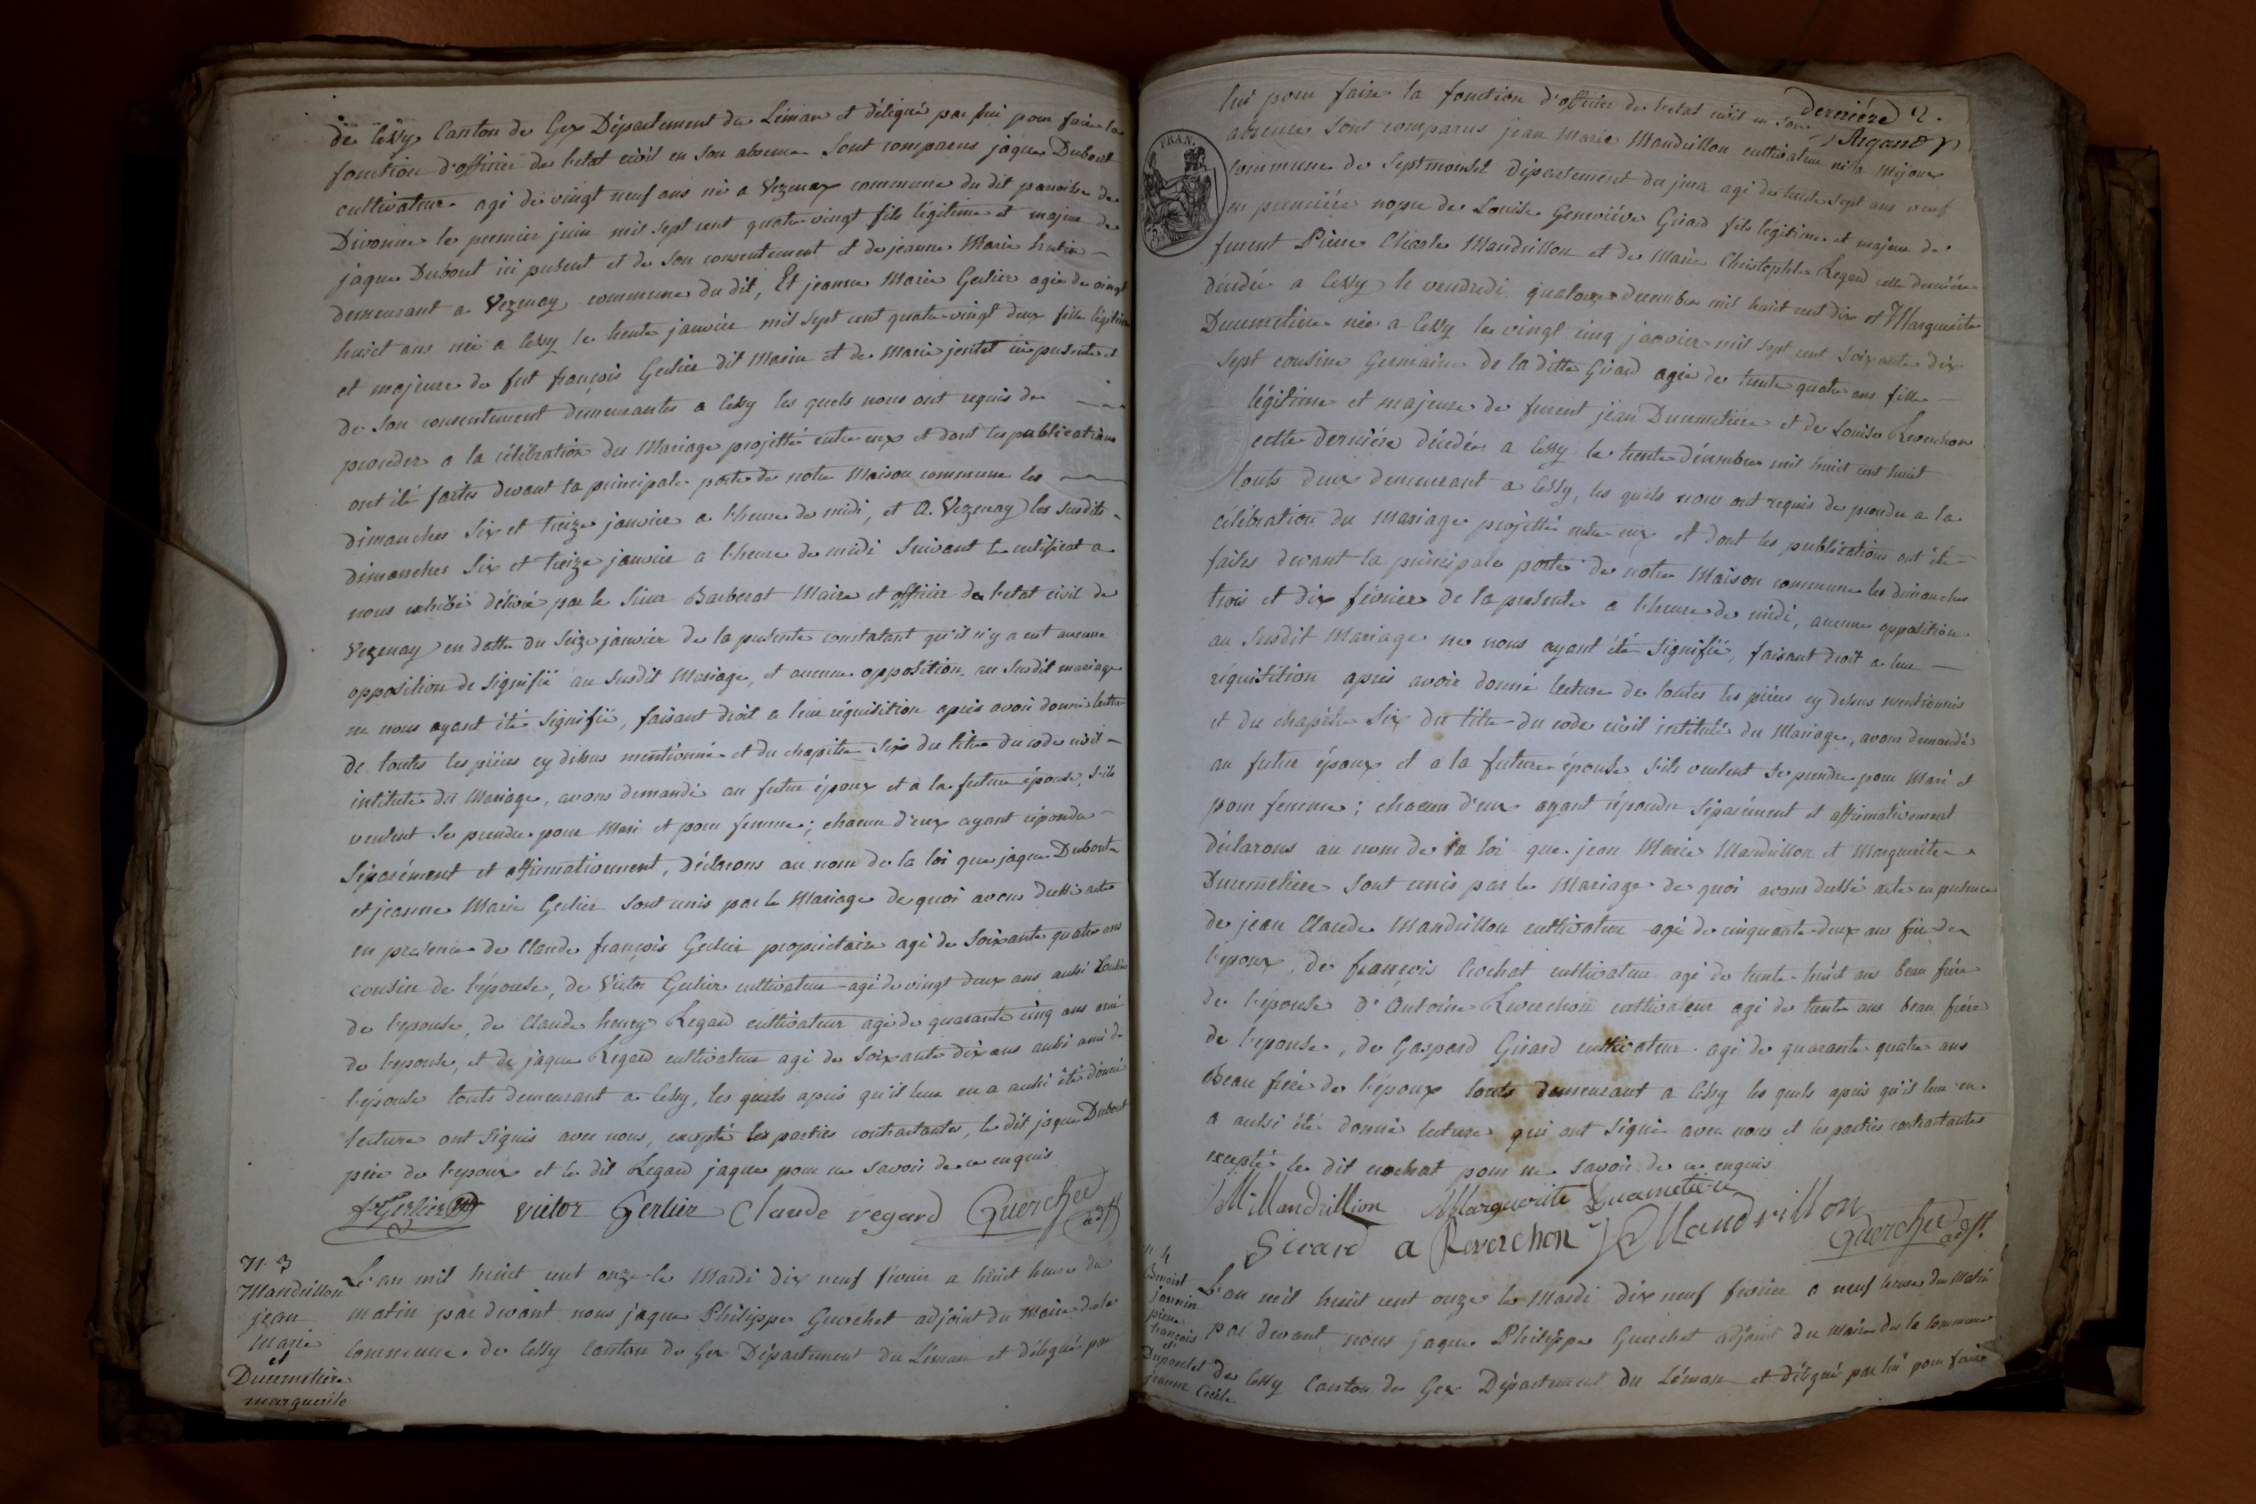 de Cessy Canton de Gex Département du Léman et délégué par lui pour faire la
fonction d'officier de l'etat civil en son absence sont comparus jaque Dubout
cultivateur agé de vingt neuf ans né a Vezenay commune du dit paroisse de
Divonne le premier juin mil sept cent quatre vingt fils légitime et majeur de
jaque Dubout ici présent et de son consentement et de jeanne Marie
demeurant a Vezenay commune du dit, Et jeanne Marie Gerlier agée de vingt
huit ans née a Cessy le trente janvier mil sept cent quatre vingt deux fille légitime
et majeure de fut françois Gerlier dit Marin et de Marie jentet ici présente et
de son consentement demeurantes a Cessy les quels nous ont requis de
proceder a la célébration du Mariage projetté entre eux et dont les publications
ont été faites devant la principale porte de notre Maison commune les
dimanches six et treize janvier a l'heure de midi, et a Vezenay les susdits
dimanches six et treize janvier a l'heure de midi suivant le certificat a
nous exhibé délivré par le sieur Barberat Maire et officier de l'etat civil de
Vezenay en datte du seize janvier de la présente constatant qu'il n'y a eut aucune
opposition de signifié au susdit Mariage, et aucune opposition au susdit mariage
ne nous ayant été signifié, faisant droit a leur réquisition après avoir donné lecture
de toutes les pièces cy dessus mentionné et du chapitre six du titre du code civil
intitulé du Mariage, avons demandé au futur époux et a la future épouse s'ils
veulent se prendre pour Mari et pour femme; chacun d'eux ayant répondu
séparément et affirmativement, déclarons au nom de la loi que jaque Dubout
et jeanne Marie Gerlier sont unis par le Mariage de quoi avons dressé acte
en presence de Claude françois Gerlier propriétaire agé de soixante quatre ans
cousin de l'épouse, de Victor Gerlier cultivateur agé de vingt deux ans aussi cousin
de l'epouse, de Claude henry Regard cultivateur agé de quarante cinq ans ami
de l'epouse, et de jaque Regard cultivateur agé de soixante dix ans aussi ami de
l'épouse touts demeurant a Cessy, les quels après qu'il leur en a aussi été donné
lecture ont signés avec nous, excepté les parties contractantes, le dit jaque Dubout
père de l'epoux et le dit Regard jaque pour ne savoir de ce enquis
Gerlier victor Gerlier Claude regard Guerchet adjt
N. 3
Mandrillon
jean
Marie
et
Ducimetière
marguerite
L'an mil huit cent onze le Mardi dix neuf février a huit heure du
matin par devant nous jaque Philippe Guerchet adjoint du maire de la
Commune de Cessy Canton de Gex Département du Léman et délégué par
derniére 2.
lui pour faire la fonction d'officier de l'etat civil en son
absence sont comparus jean Marie Mandrillon cultivateur né a Mijoux
commune de Septmoncel Département du jura agé de trente sept ans veuf
en première nopce de Louise Geneviève Girard fils légitime et majeur de
furent Pierre Charle Mandrillon et de Marie Christophle Regard cette dernière
décédée a Cessy le vendredi quatorze decembre mil huit cent dix et Marguerite
Ducimetière née a Cessy le vingt cinq janvier mil sept cent soixante dix
sept cousine Germaine de la ditte Girard agée de trente quatre ans fille
légitime et majeure de furent jean Ducimetière et de Louise Reverchon
cette dernière décédée a Cessy le trente décembre mil huit cent huit
touts deux demeurant a Cessy, les quels nous ont requis de proceder a la
célébration du Mariage projetté entre eux et dont les publications ont été
faites devant la principale porte de notre Maison commune les dimanches
trois et dix février de la présente a l'heure de midi, aucune opposition
au susdit Mariage ne nous ayant été signifié, faisant droit a leur
réquisition après avoir donné lecture de toutes les pièces cy dessus mentionnés
et du chapitre six du titre du code civil intitulé du Mariage, avons demandé
au futur époux et a la future épouse s'ils veulent se prendre pour Mari et
pour femme; chacun d'eux ayant répondu séparément et affirmativement
déclarons au nom de la loi que jean Marie Mandrillon et Marguerite
Ducimetière sont unis par le Mariage de quoi avons dressé acte en présence
de jean Claude Mandrillon cultivateur agé de cinquante deux ans frère de
l'epoux, de françois Crochat cultivateur agé de trente-huit ans beau frère
de l'épouse d'Antoine Reverchon cultivateur agé de trente ans beau frère
de l'epouse, de Gaspard Girard cultivateur agé de quarante quatre ans
Beau frère de l'époux touts demeurant a Cessy les quels après qu'il leur en
a aussi été donné lecture qui ont signé avec nous et les parties contractantes
excepté le dit crochat pour ne savoir de ce enquis
JM Mandrillion Marguerite Ducimetiere
Girard a Reverchon Mandrillon Guerchet adjt.
N. 4
Benoist
jannin
pierre
françois
et
Dupontet
jeanne Cécile
L'an mil huit cent onze le Mardi dix neuf février a neuf heure du Matin
par devant nous jaque Philippe Guerchet adjoint du maire de la Commune
de Cessy Canton de Gex Département du Léman et délégué par lui pour faire